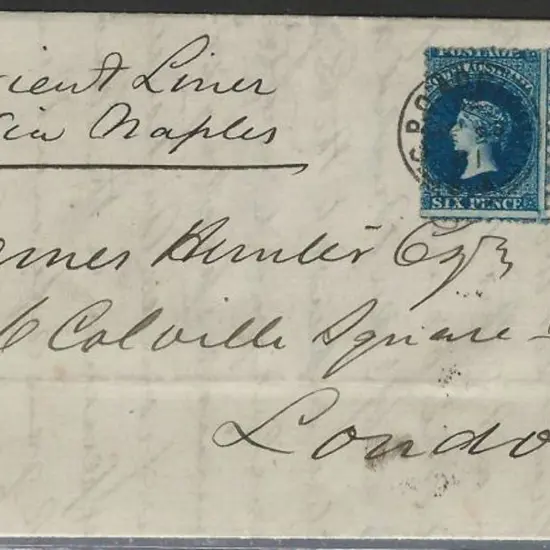 rient Liner
Via Naples
POSTAGE
SOUTH AUSTRALIA
SIX PENCE
ames Hunter Esqr
Colville Square
Londo